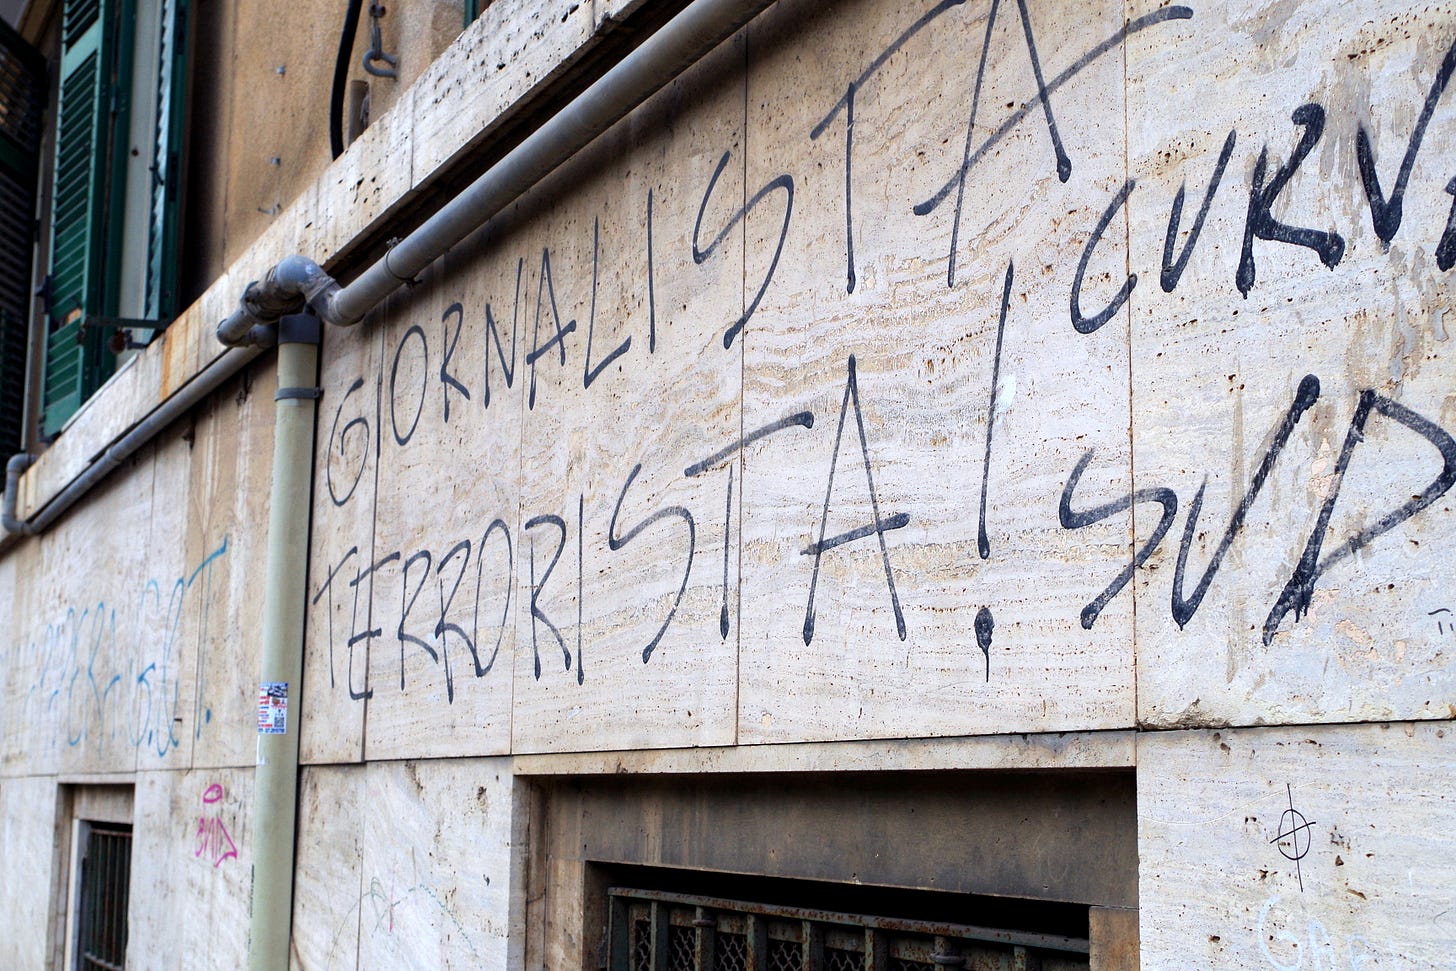 GIORNALISTA
TERRORISTA!
CURVA
SUD